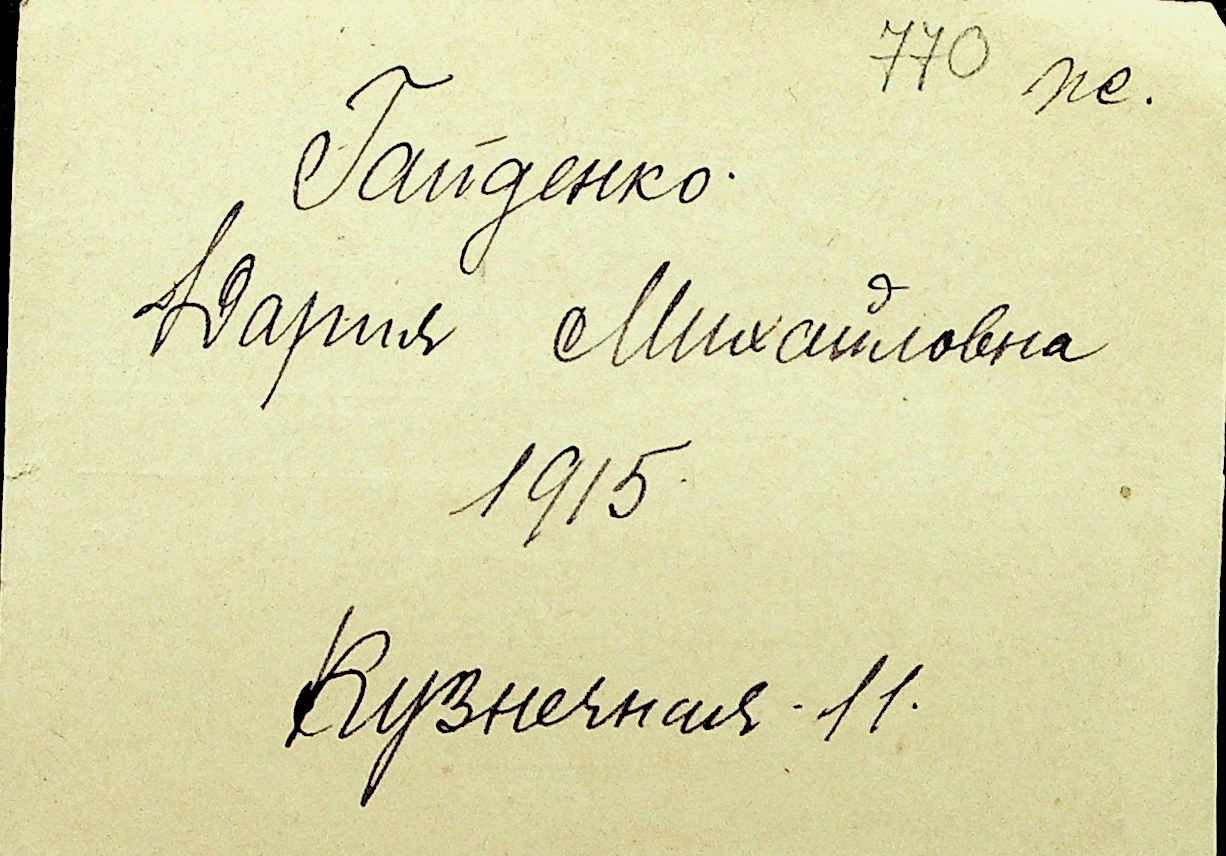 770 пе.
Гайденко.
Дария Михайловна
1915
Кузнечная - 11.